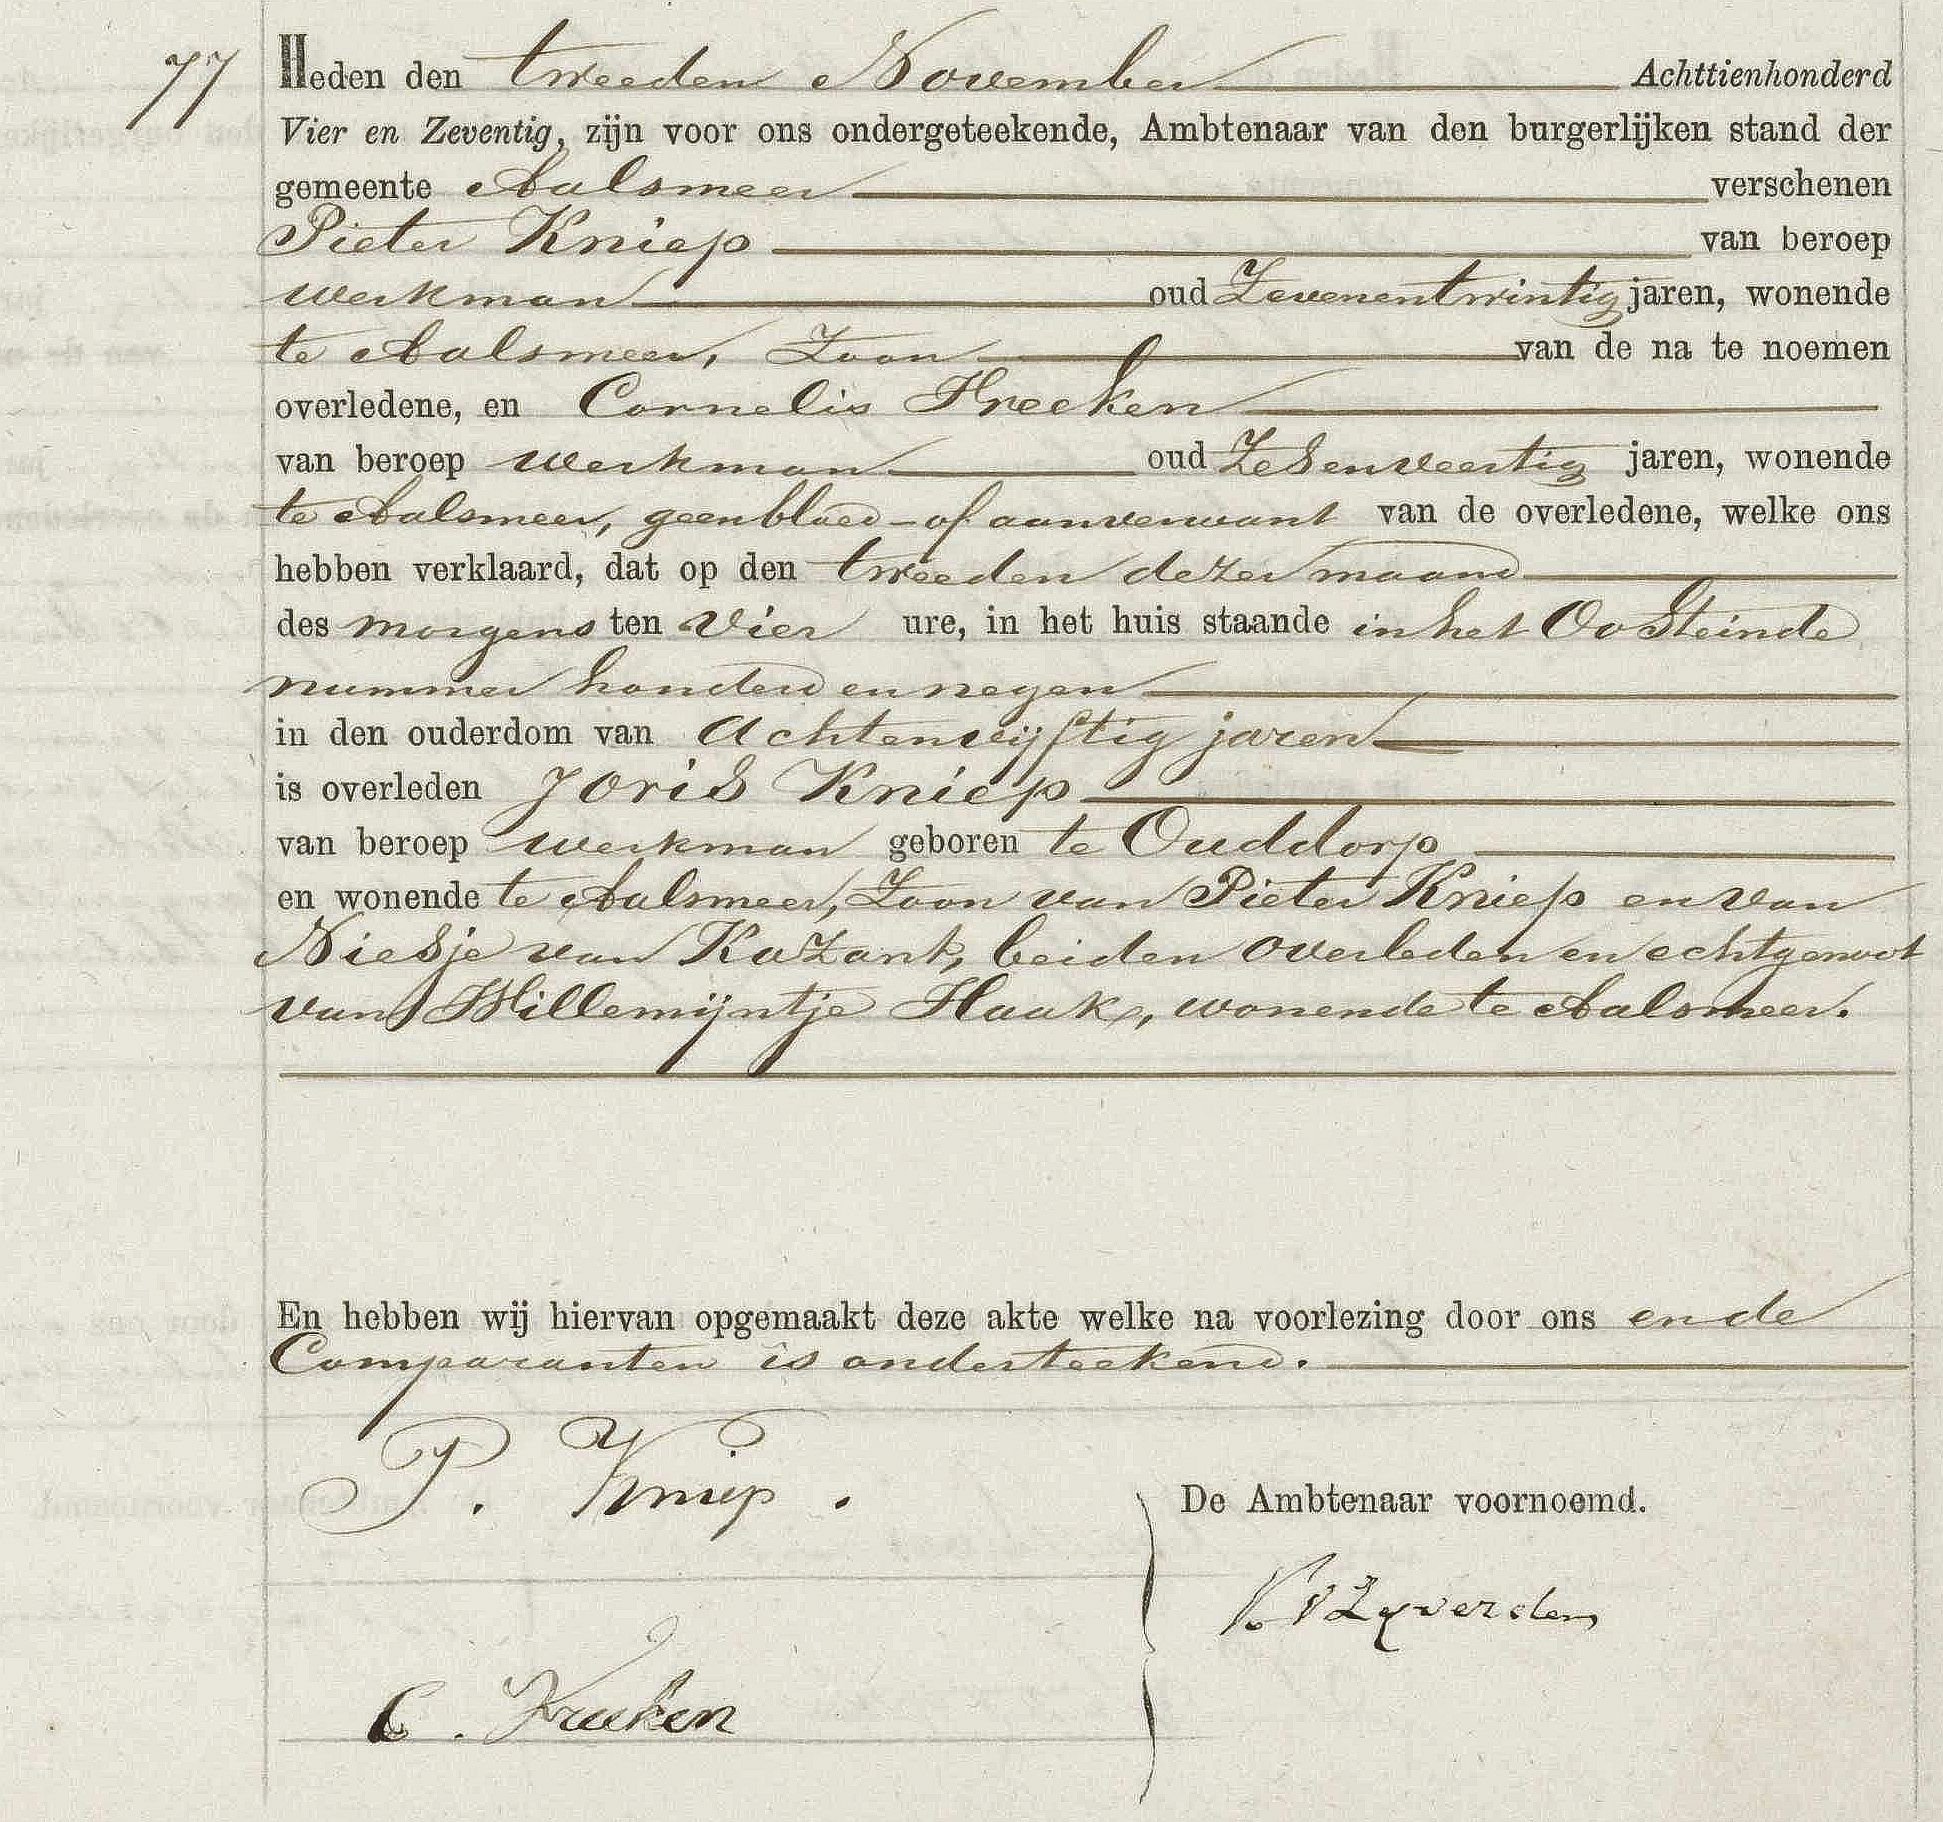 77
Heden den tweeden November Achttienhonderd
Vier en Zeventig, zijn voor ons ondergeteekende, Ambtenaar van den burgerlijken stand der
gemeente Aalsmeer verschenen
Pieter Kniep van beroep
werkman oud Zevenentwintig jaren, wonende
te Aalsmeer, Zoon van de na te noemen
overledene, en Cornelis Freeken
van beroep werkman oud Zesenveertig jaren, wonende
te Aalsmeer, geen bloed- of aanverwant van de overledene, welke ons
hebben verklaard, dat op den tweeden dezer maand
des morgens ten Vier ure, in het huis staande in het Oosteinde
nummer honderd en negen
in den ouderdom van Achtenvijftig jaren
is overleden Joris Kniep
van beroep werkman geboren te Ouddorp
en wonende te Aalsmeer, Zoon van Pieter Kniep en van
Niesje van Kazant, beiden overleden en echtgenoot
van Willemijntje Haak, wonende te Aalsmeer.
En hebben wij hiervan opgemaakt deze akte welke na voorlezing door ons en de
Comparanten is onderteekend.
P. Kniep.
De Ambtenaar voornoemd.
C. Freeken